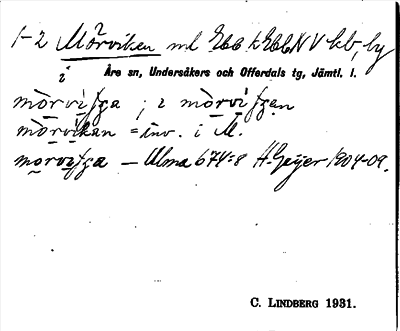 1-2 Mörviken ml Ebb t Ebb N V bb, by
i Åre sn, Undersåkers och Offerdals tg, Jämtl. l.
mörviʃɡa ; i mörviʃɡən
mörvikan = inv. i M.
mörviʃɡa — Ulma 674:8 H. Geijer 1904-09.
C. LINDBERG 1931.